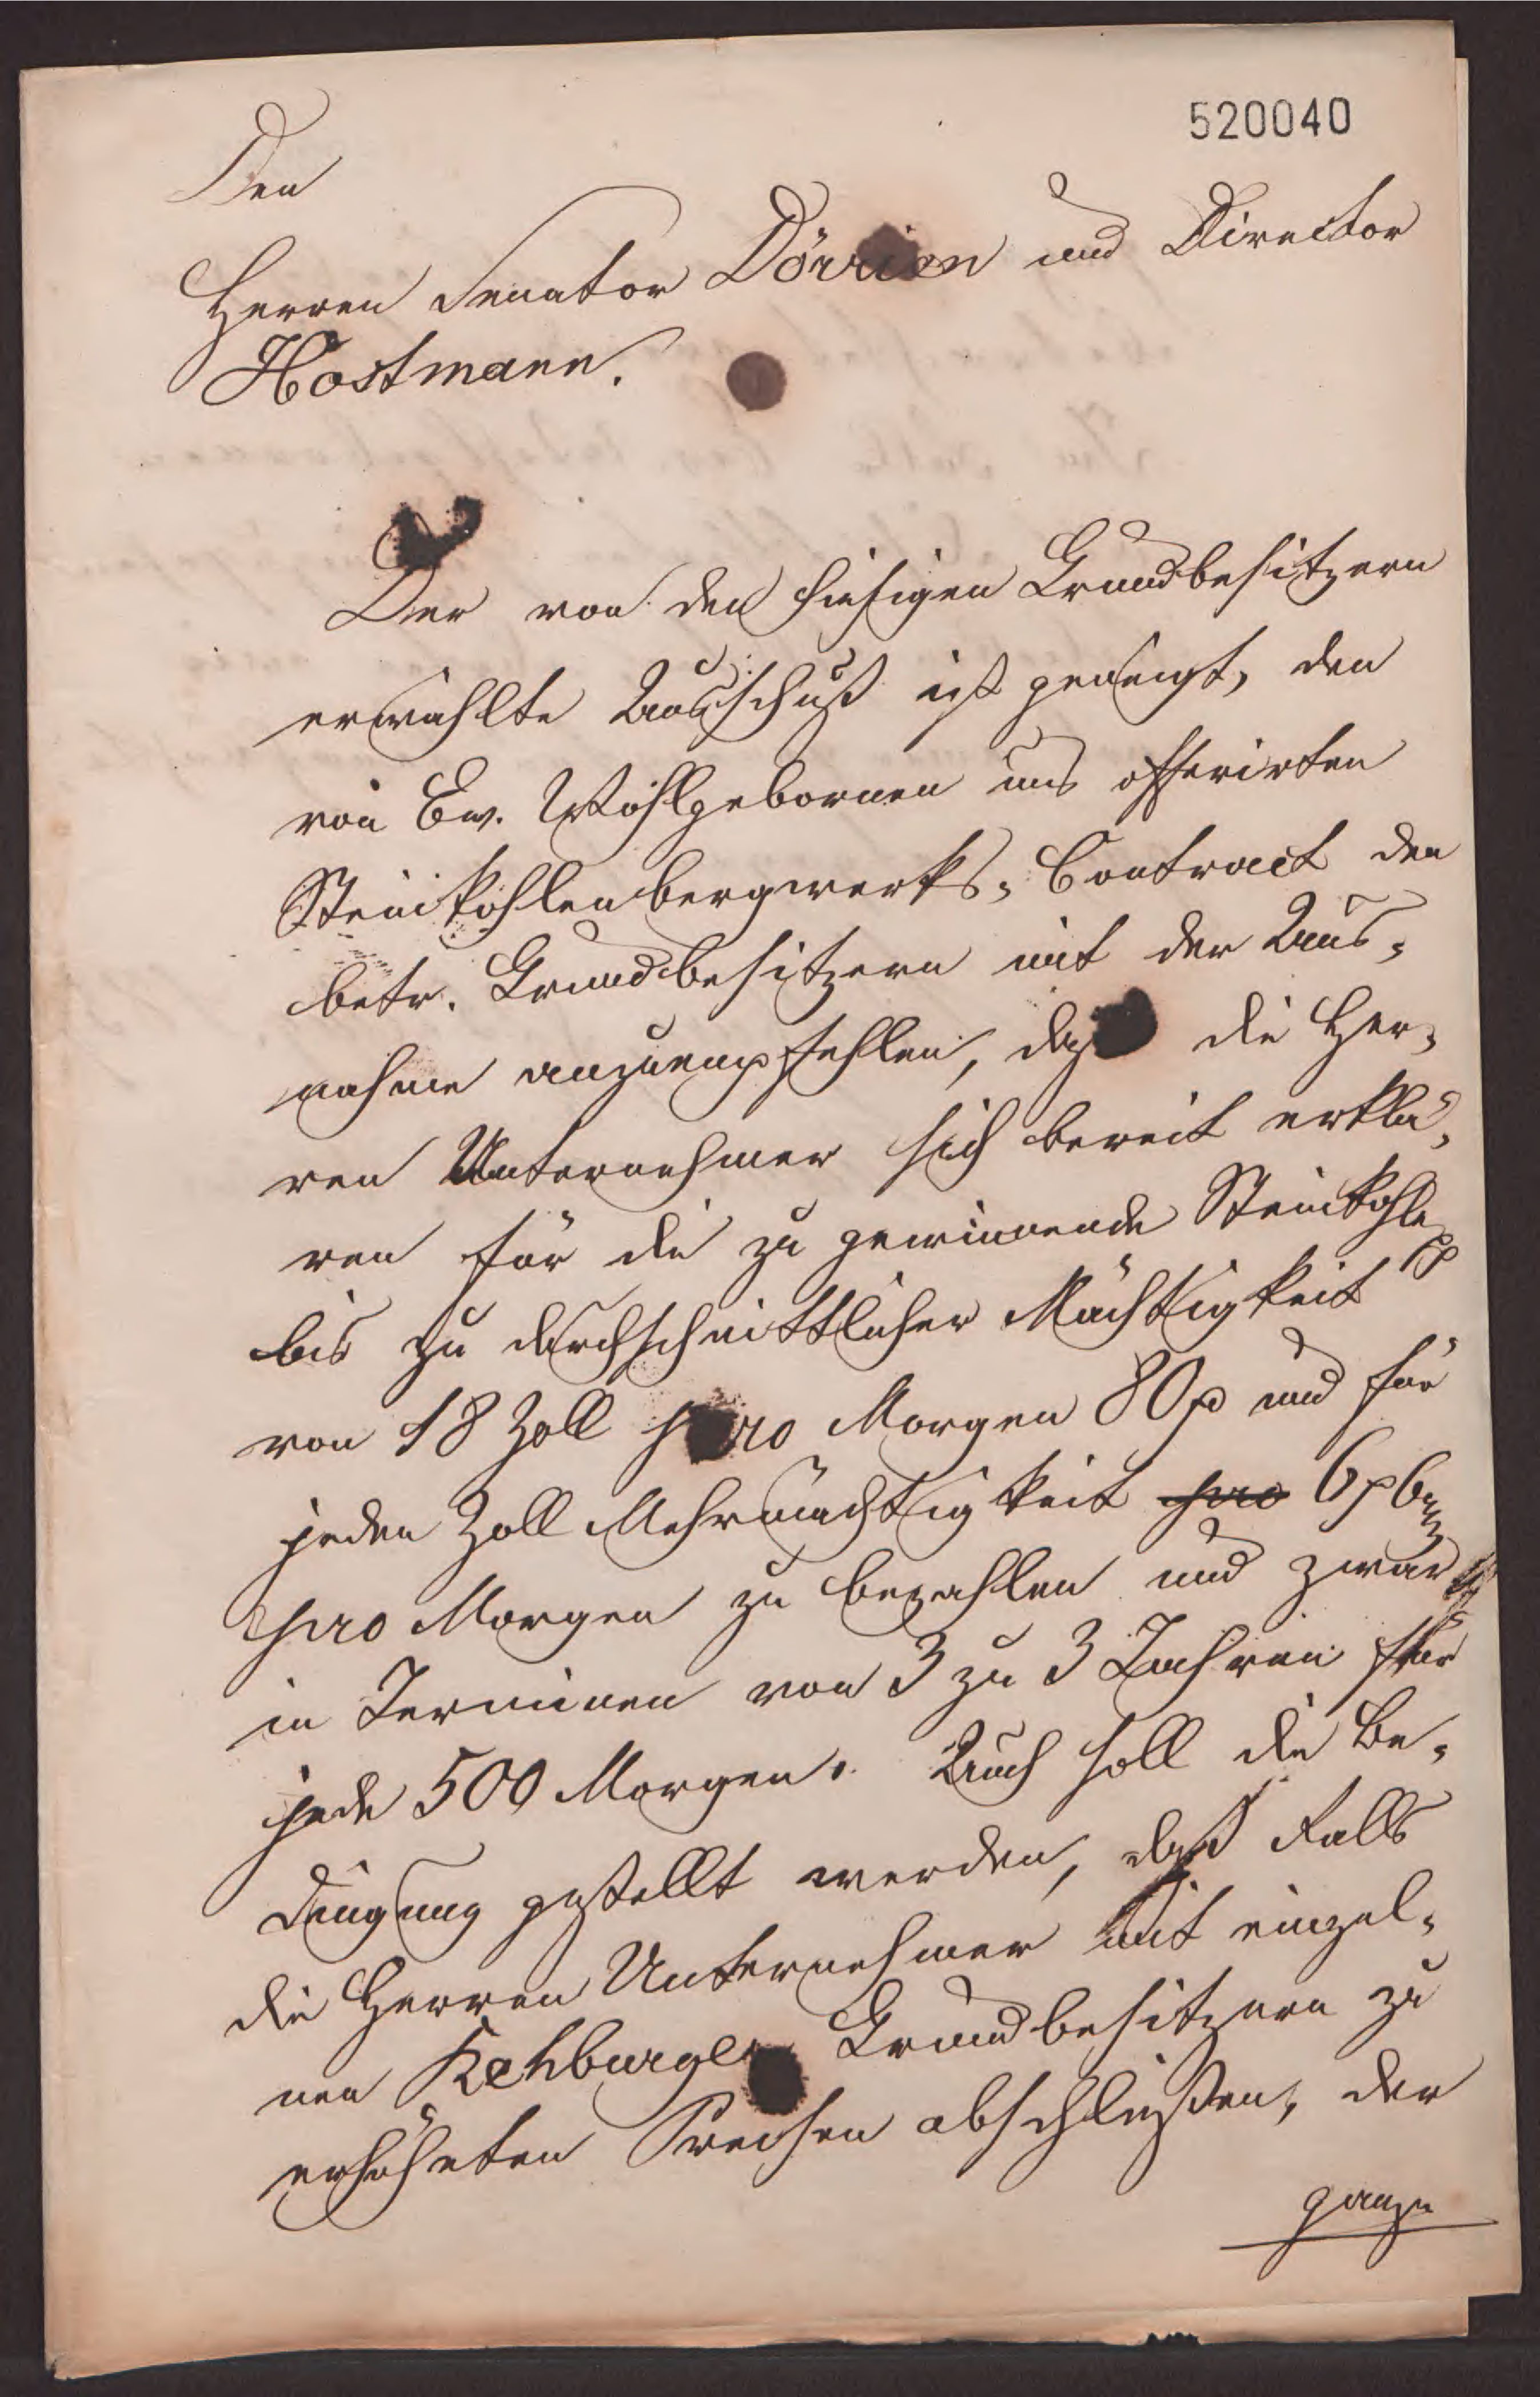 520040
Den
Herren Senator Dörrien und Director
Hostmann.
Der von den hiesigen Grundbesitzern
erwählte Ausschuß ist geneigt, den
von Ew. Wohlgebornen uns offerirten
Steinkohlenbergwerks-Contract den
betr. Grundbesitzern mit der Aus-
nahme anzuempfehlen, daß die Her-
ren Unternehmer sich bereit erklä-
ren für die zu gewinnende Steinkohle
bis zu durchschnittlicher Mächtigkeit
von 18 Zoll pro Morgen 80 und für
jeden Zoll Mehrmächtigkeit pro 6
pro Morgen zu bezahlen und zwar
in Terminen von 3 zu 3 Jahren für
jede 500 Morgen. Auch soll die Be-
dingung gestellt werden, daß Falls
die Herren Unternehmer mit einzel-
nen Rehburger Grundbesitzern zu
erhöheten Preisen abschließen, der
ganze